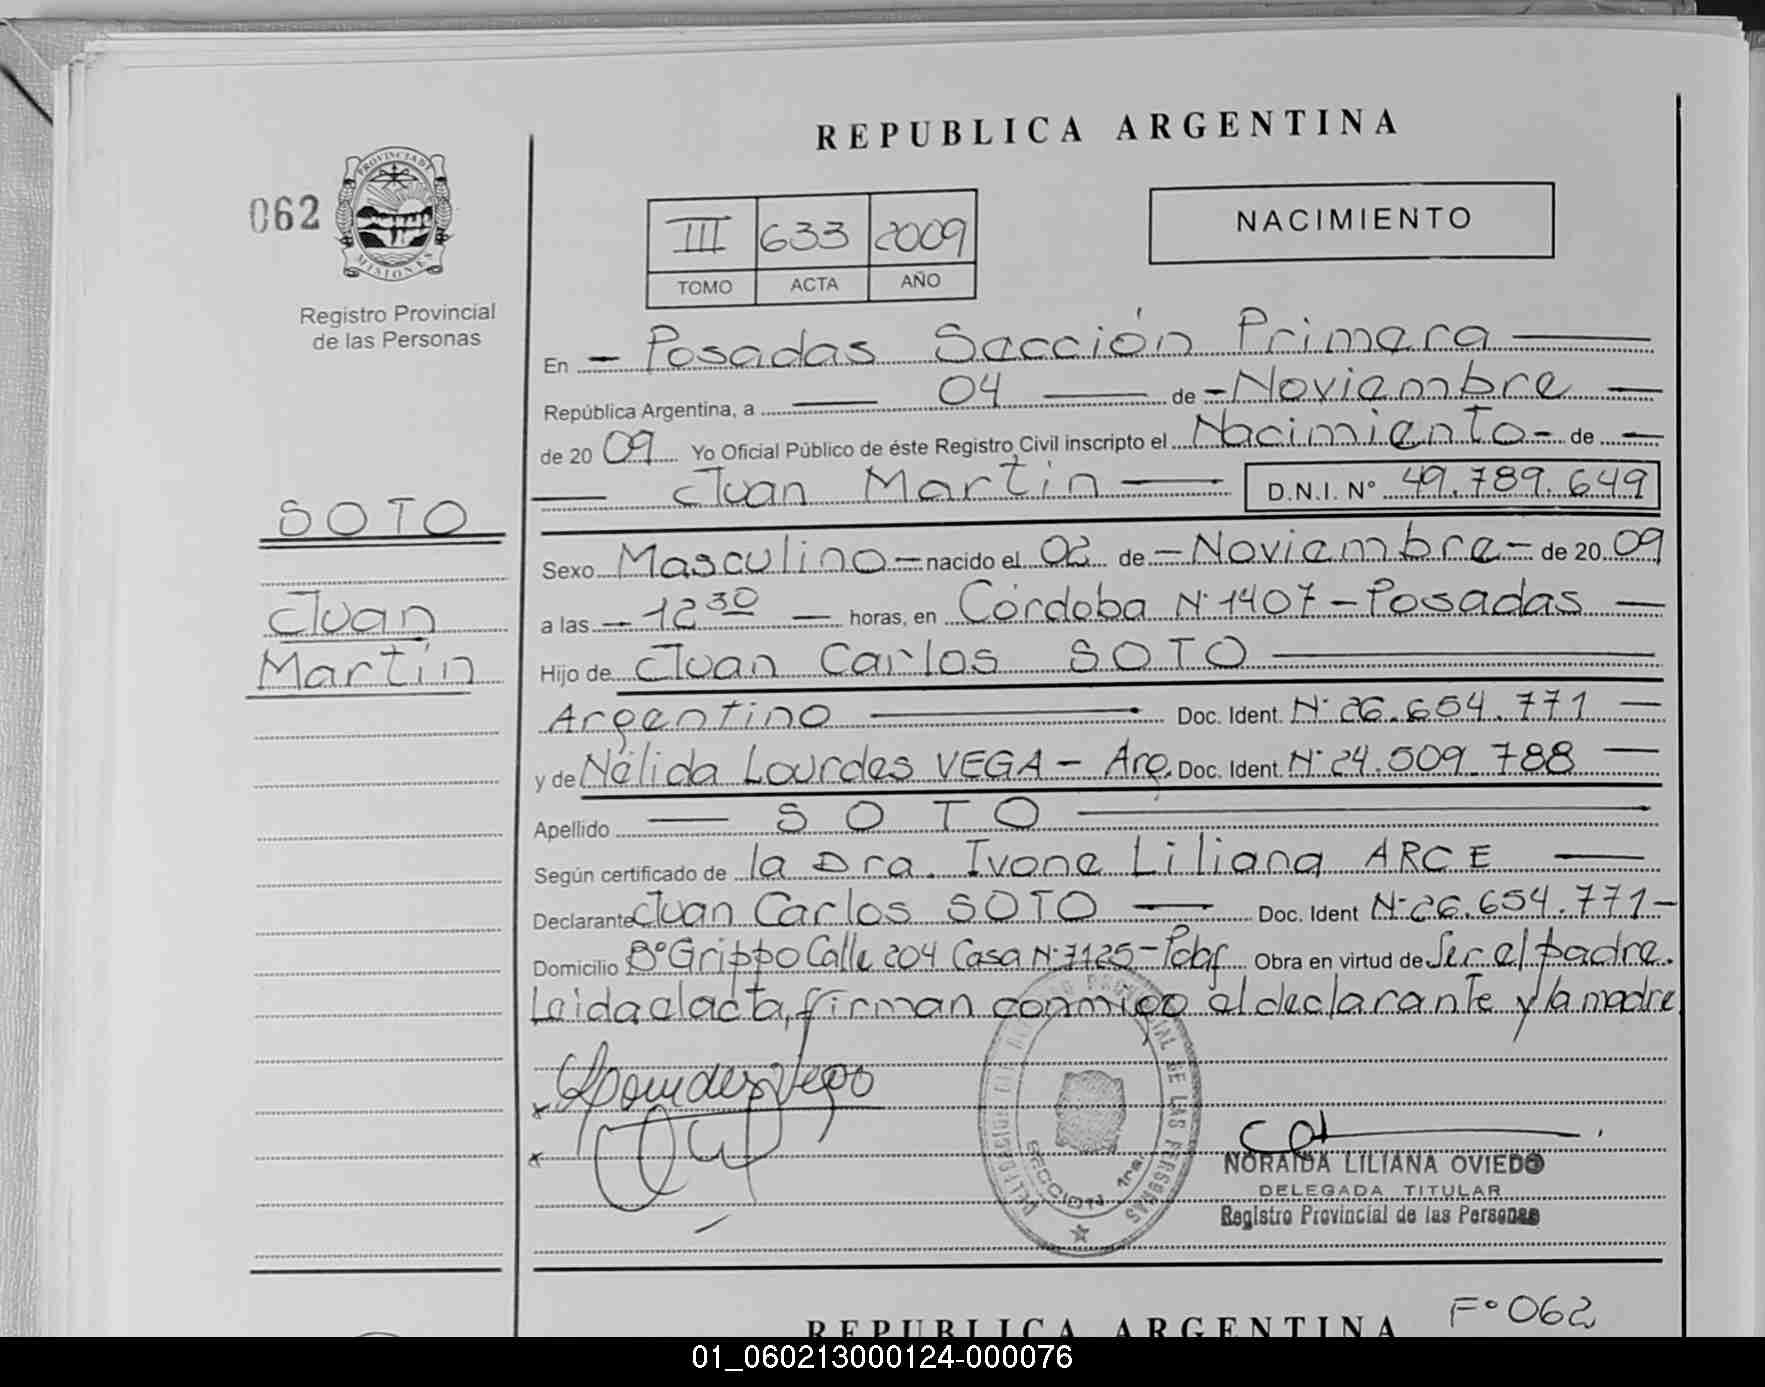 REPUBLICA ARGENTINA
062
PROVINCIA DE
MISIONES
Registro Provincial
de las Personas
III 633 2009
TOMO ACTA AÑO
NACIMIENTO
En - Posadas Sección Primera
República Argentina, a 04 de - Noviembre
de 20 09 Yo Oficial Público de éste Registro Civil inscripto el Nacimiento - de
Juan Martín D.N.I. N° 49.789.649
SOTO
Juan
Martín
Sexo Masculino - nacido el 02 de - Noviembre - de 20 09
a las - 12 30 - horas, en Córdoba N° 1407 - Posadas
Hijo de Juan Carlos SOTO
Argentino Doc. Ident. N° 26.654.771
y de Nélida Lourdes VEGA - Arg. Doc. Ident. N° 24.509.788
Apellido SOTO
Según certificado de la Dra. Ivone Liliana ARCE
Declarante Juan Carlos SOTO Doc. Ident N° 26.654.771 -
Domicilio B° Grippo Calle 204 Casa N° 7125 - Obra en virtud de Ser el padre.
Leida el acta, firman conmigo el declarante y la madre
PROVINCIAL DE LAS PERSONAS
SECCION 1ra.
NORAIDA LILIANA OVIEDO
DELEGADA TITULAR
Registro Provincial de las Personas
F° 062
REPUBLICA ARGENTINA
01_060213000124-000076